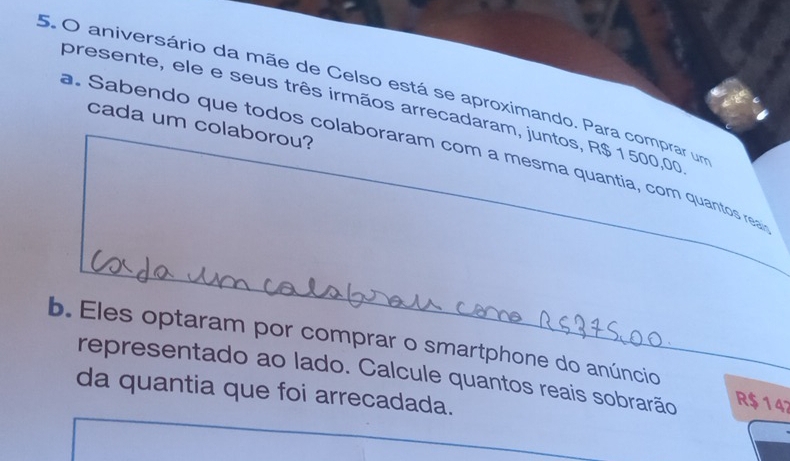 5. O aniversário da mãe de Celso está se aproximando. Para comprar um
presente, ele e seus três irmãos arrecadaram, juntos, R$ 1 500,00.
a. Sabendo que todos colaboraram com a mesma quantia, com quantos reais
cada um colaborou?
cada um colaborou como R$375,00.
b. Eles optaram por comprar o smartphone do anúncio
representado ao lado. Calcule quantos reais sobrarão
da quantia que foi arrecadada.
R$ 142